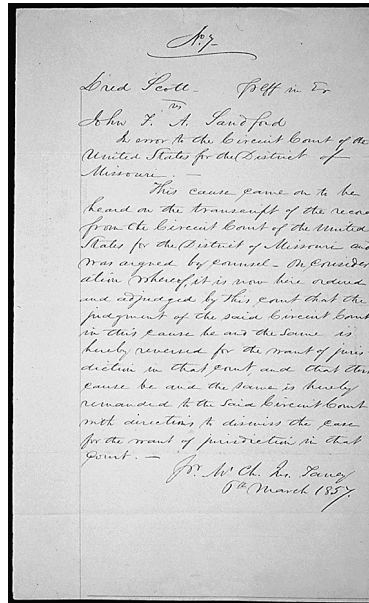 No. 7
Dred Scott - Plff in Er
vs
John F. A. Sandford
In error to the Circuit Court of the
United States for the District of
Missouri. —
This cause came on to be
heard on the transcript of the record
from the Circuit Court of the United
States for the District of Missouri and
was argued by counsel - On consider
ation whereof, it is now here ordered
and adjudged by this court that the
judgment of the said Circuit Court
in this cause be and the same is
hereby reversed for the want of juris
diction in that court and that this
cause be and the same is hereby
remanded to the said Circuit Court
with directions to dismiss the case
for the want of jurisdiction in that
Court. —
Mr. Ch. Jus. Taney
6th March 1857.